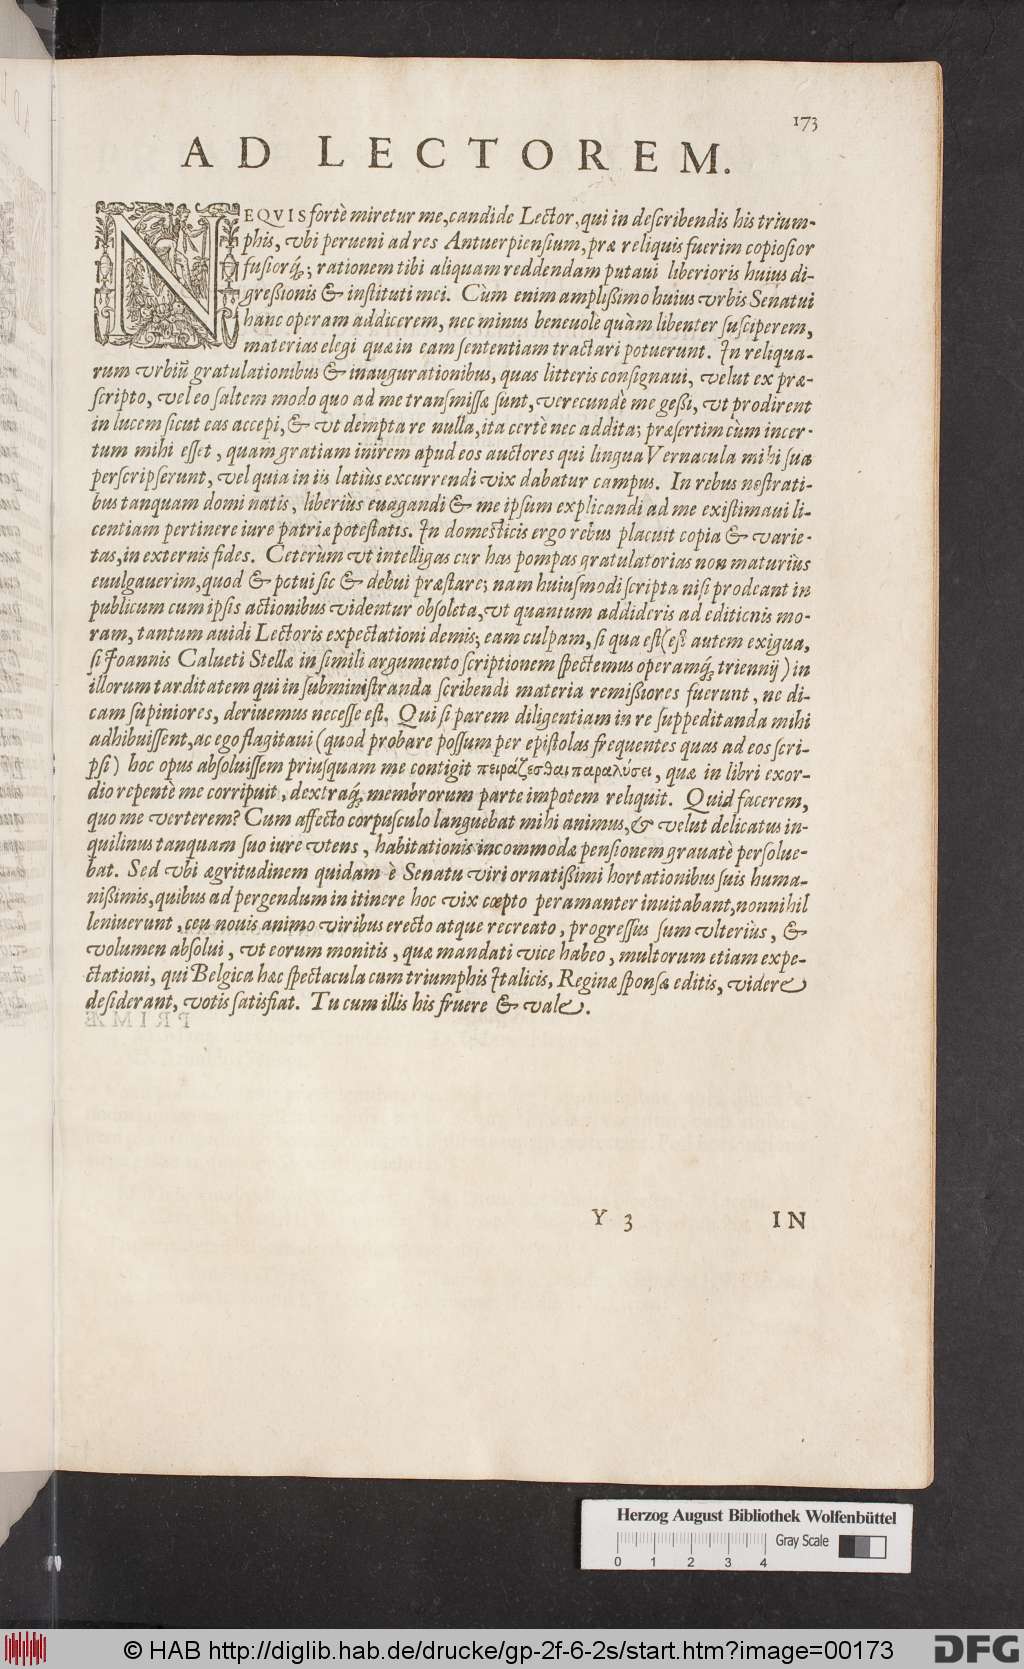 173
AD LECTOREM.
NEQVIS fortè miretur me, candide Lector, qui in describendis his trium-
phis, vbi perueni ad res Antuerpiensium, præ reliquis fuerim copiosior
fusiorq́; rationem tibi aliquam reddendam putaui liberioris huius di-
greßionis & instituti mei. Cùm enim amplißimo huius vrbis Senatui
hanc operam addicerem, nec minus beneuolè quàm libenter susciperem,
materias elegi quæ in eam sententiam tractari potuerunt. In reliqua-
rum vrbiū gratulationibus & inaugurationibus, quas litteris consignaui, velut ex præ-
scripto, vel eo saltem modo quo ad me transmissæ sunt, verecundè me geßi, vt prodirent
in lucem sicut eas accepi, & vt dempta re nulla, ita certè nec addita; præsertim cùm incer-
tum mihi esset, quam gratiam inirem apud eos auctores qui lingua Vernacula mihi sua
perscripserunt, vel quia in iis latiùs excurrendi vix dabatur campus. In rebus nostrati-
bus tanquam domi natis, liberiùs euagandi & me ipsum explicandi ad me existimaui li-
centiam pertinere iure patriæ potestatis. In domesticis ergo rebus placuit copia & varie-
tas, in externis fides. Ceterùm vt intelligas cur has pompas gratulatorias non maturiùs
euulgauerim, quod & potui sic & debui præstare; nam huiusmodi scripta nisi prodeant in
publicum cum ipsis actionibus videntur obsoleta, vt quantum addideris ad editionis mo-
ram, tantum auidi Lectoris expectationi demis; eam culpam, si qua est (est autem exigua,
si Ioannis Calueti Stellæ in simili argumento scriptionem spectemus operamq́; triennij) in
illorum tarditatem qui in subministranda scribendi materia remißiores fuerunt, ne di-
cam supiniores, deriuemus necesse est. Qui si parem diligentiam in re suppeditanda mihi
adhibuissent, ac ego flagitaui (quod probare possum per epistolas frequentes quas ad eos scri-
psi) hoc opus absoluissem priusquam me contigit πειράζεσθαι παραλύσει, quæ in libri exor-
dio repentè me corripuit, dextraq́; membrorum parte impotem reliquit. Quid facerem,
quo me verterem? Cum affecto corpusculo languebat mihi animus, & velut delicatus in-
quilinus tanquam suo iure vtens, habitationis incommodæ pensionem grauatè persolue-
bat. Sed vbi ægritudinem quidam è Senatu viri ornatißimi hortationibus suis huma-
nißimis, quibus ad pergendum in itinere hoc vix cœpto peramanter inuitabant, nonnihil
leniuerunt, ceu nouis animo viribus erecto atque recreato, progressus sum vlteriùs, &
volumen absolui, vt eorum monitis, quæ mandati vice habeo, multorum etiam expe-
ctationi, qui Belgica hæc spectacula cum triumphis Italicis, Reginæ sponsæ editis, videre
desiderant, votis satisfiat. Tu cum illis his fruere & vale.
Y 3 IN
Herzog August Bibliothek Wolfenbüttel
Gray Scale
0 1 2 3 4
© HAB http://diglib.hab.de/drucke/gp-2f-6-2s/start.htm?image=00173
DFG